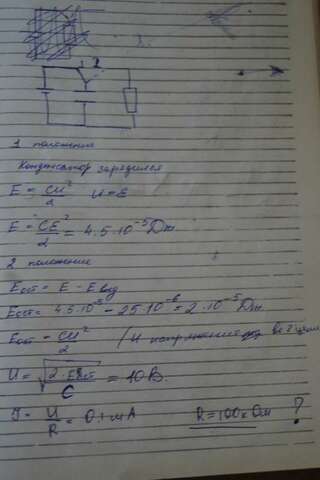 1 2
1 положение
Конденсатор зарядился
E = CU²/2 U = E
E = CE²/2 = 4.5·10⁻⁵ Дж
2 положение
Eост = E - Eвыд
Eост = 4.5·10⁻⁵ - 25·10⁻⁶ = 2·10⁻⁵ Дж
Eост = CU²/2 (U напряжение во 2 цепи
U = √(2·Eост/C) = 10 В.
J = U/R = 0.1 мА R = 100к Ом ?